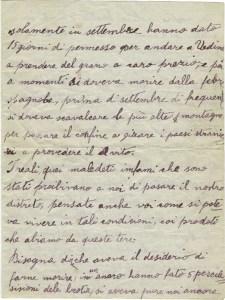 solamente in settembre hanno dato
15 giorni di permesso per andare a Vedine
a prendere del grano a caro prezzo, e poi
a momenti si doveva morire dalla febre
spagnola, prima di settembre di frequente
si doveva scavalcare le più alte montagne
per passare il confine e girare i paesi stranie
ri a provedere il vito.
I reali quei maledeti infami che sono
stati proibivano a noi di pasare il nostro
distrito, pensate anche voi come si pote
va vivere in tali condizioni, coi prodoti
che abiamo da queste tere.
Bisogna dighe avevano il desiderio di
farne morire, in
anoro hanno fato 5
sisioni dele biota, si aveva pure noi ancora